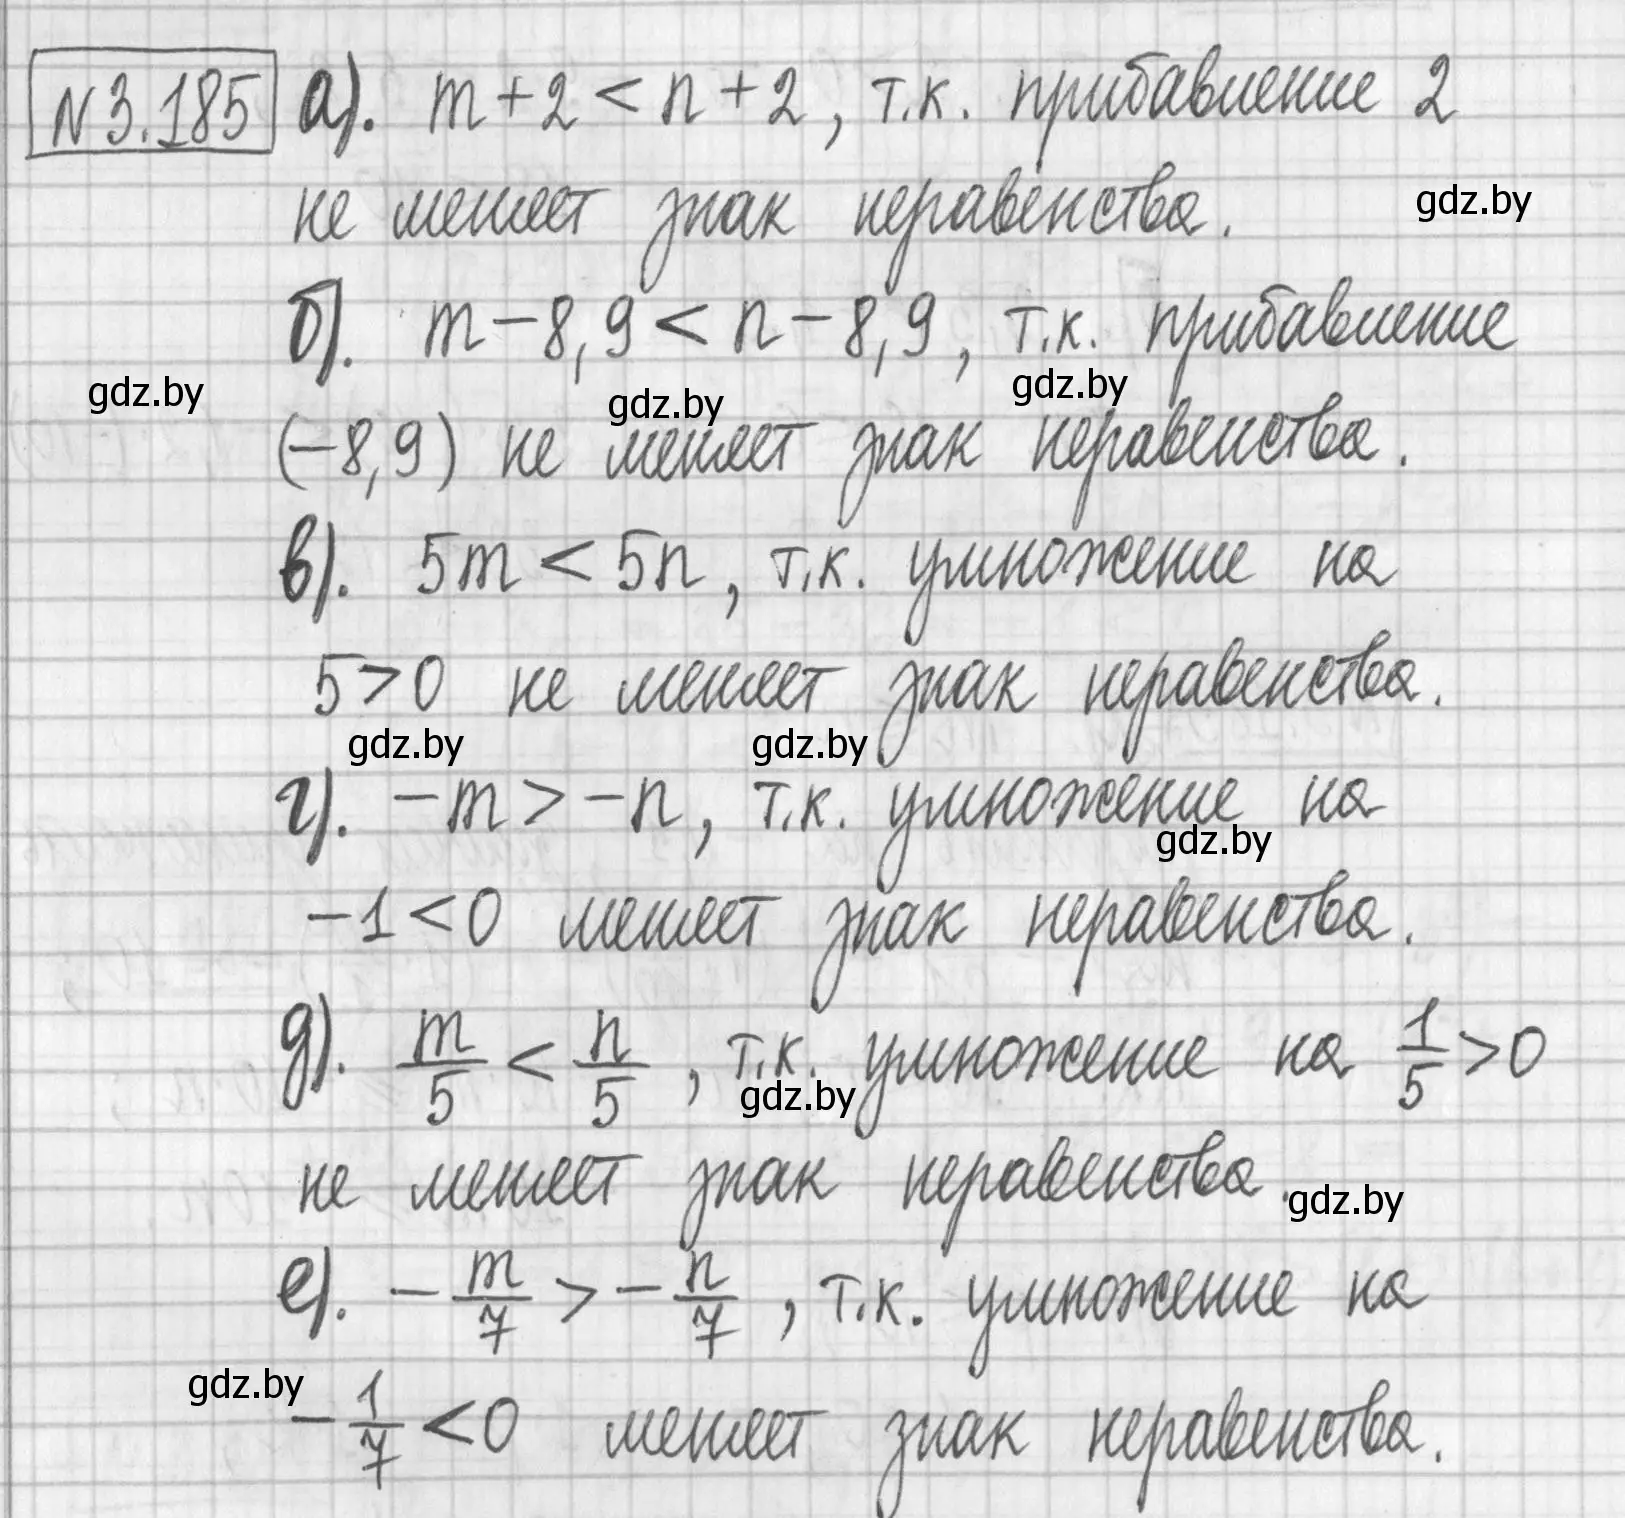 №3.185 а). m+2<n+2, т.к. прибавление 2
не меняет знак неравенства.
gdz.by
б). m-8,9<n-8,9, т.к. прибавление
gdz.by gdz.by gdz.by
(-8,9) не меняет знак неравенства.
в). 5m<5n, т.к. умножение на
5>0 не меняет знак неравенства.
gdz.by gdz.by
г). -m>-n, т.к. умножение на
gdz.by
-1<0 меняет знак неравенства.
д). m/5<n/5, т.к. умножение на 1/5>0
gdz.by
не меняет знак неравенства.
gdz.by
е). -m/7>-n/7, т.к. умножение на
gdz.by
-1/7<0 меняет знак неравенства.